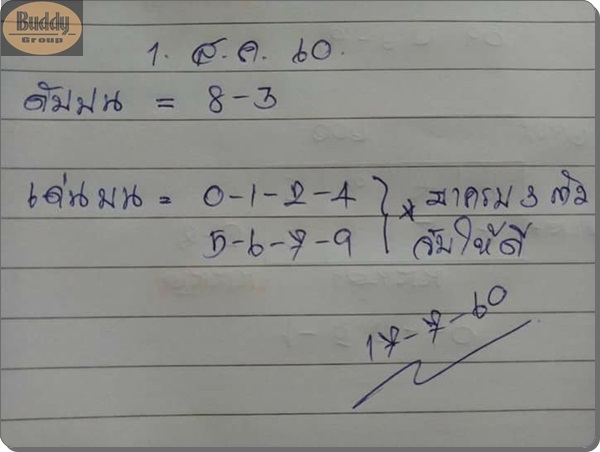 Buddy
Group
1. ส.ค. 60.
ดับบน = 8-3
เด่นบน = 0-1-2-4 } * มาครบ 3 ตัว
5-6-7-9 จับให้ดี
17-7-60